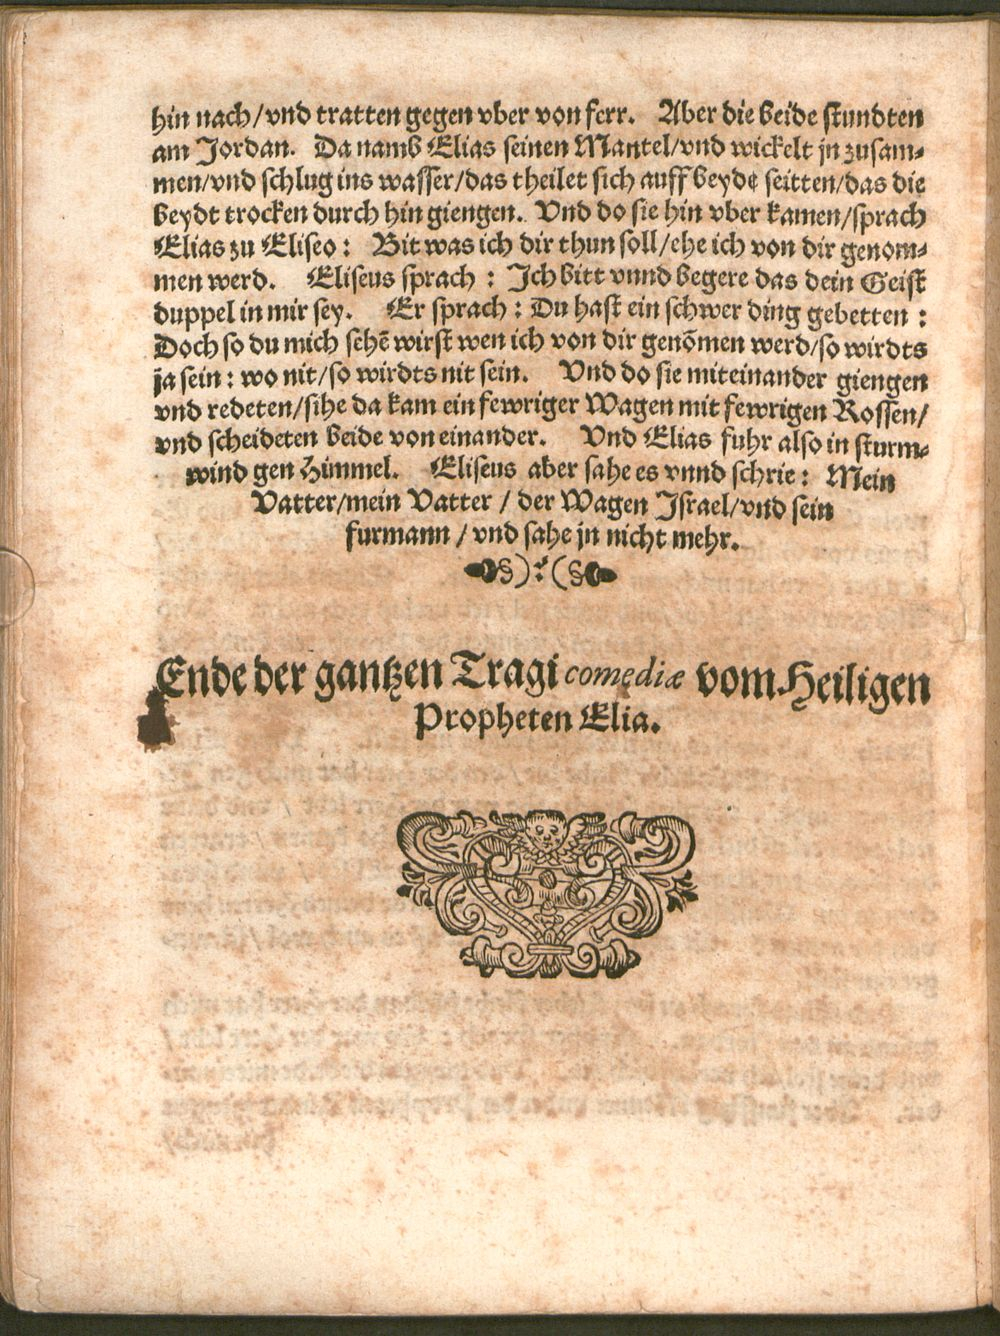 hin nach/vnd tratten gegen vber von ferr. Aber die beide stundten
am Jordan. Da namb Elias seinen Mantel/vnd wickelt jn zusam-
men/vnd schlug ins wasser/das theilet sich auff beyde seitten/das die
beydt trocken durch hin giengen. Vnd do sie hin vber kamen/sprach
Elias zu Eliseo: Bit was ich dir thun soll/ehe ich von dir genom-
men werd. Eliseus sprach: Ich bitt vnnd begere das dein Geist
duppel in mir sey. Er sprach: Du hast ein schwer ding gebetten:
Doch so du mich sehē wirst wen ich von dir genõmen werd/so wirdts
ja sein: wo nit/so wirdts nit sein. Vnd do sie miteinander giengen
vnd redeten/sihe da kam ein fewriger Wagen mit fewrigen Rossen/
vnd scheideten beide von einander. Vnd Elias fuhr also in sturm-
wind gen Himmel. Eliseus aber sahe es vnnd schrie: Mein
Vatter/mein Vatter/der Wagen Israel/vnd sein
furmann/vnd sahe jn nicht mehr.
Ende der gantzen Tragi comediæ vom Heiligen
Propheten Elia.